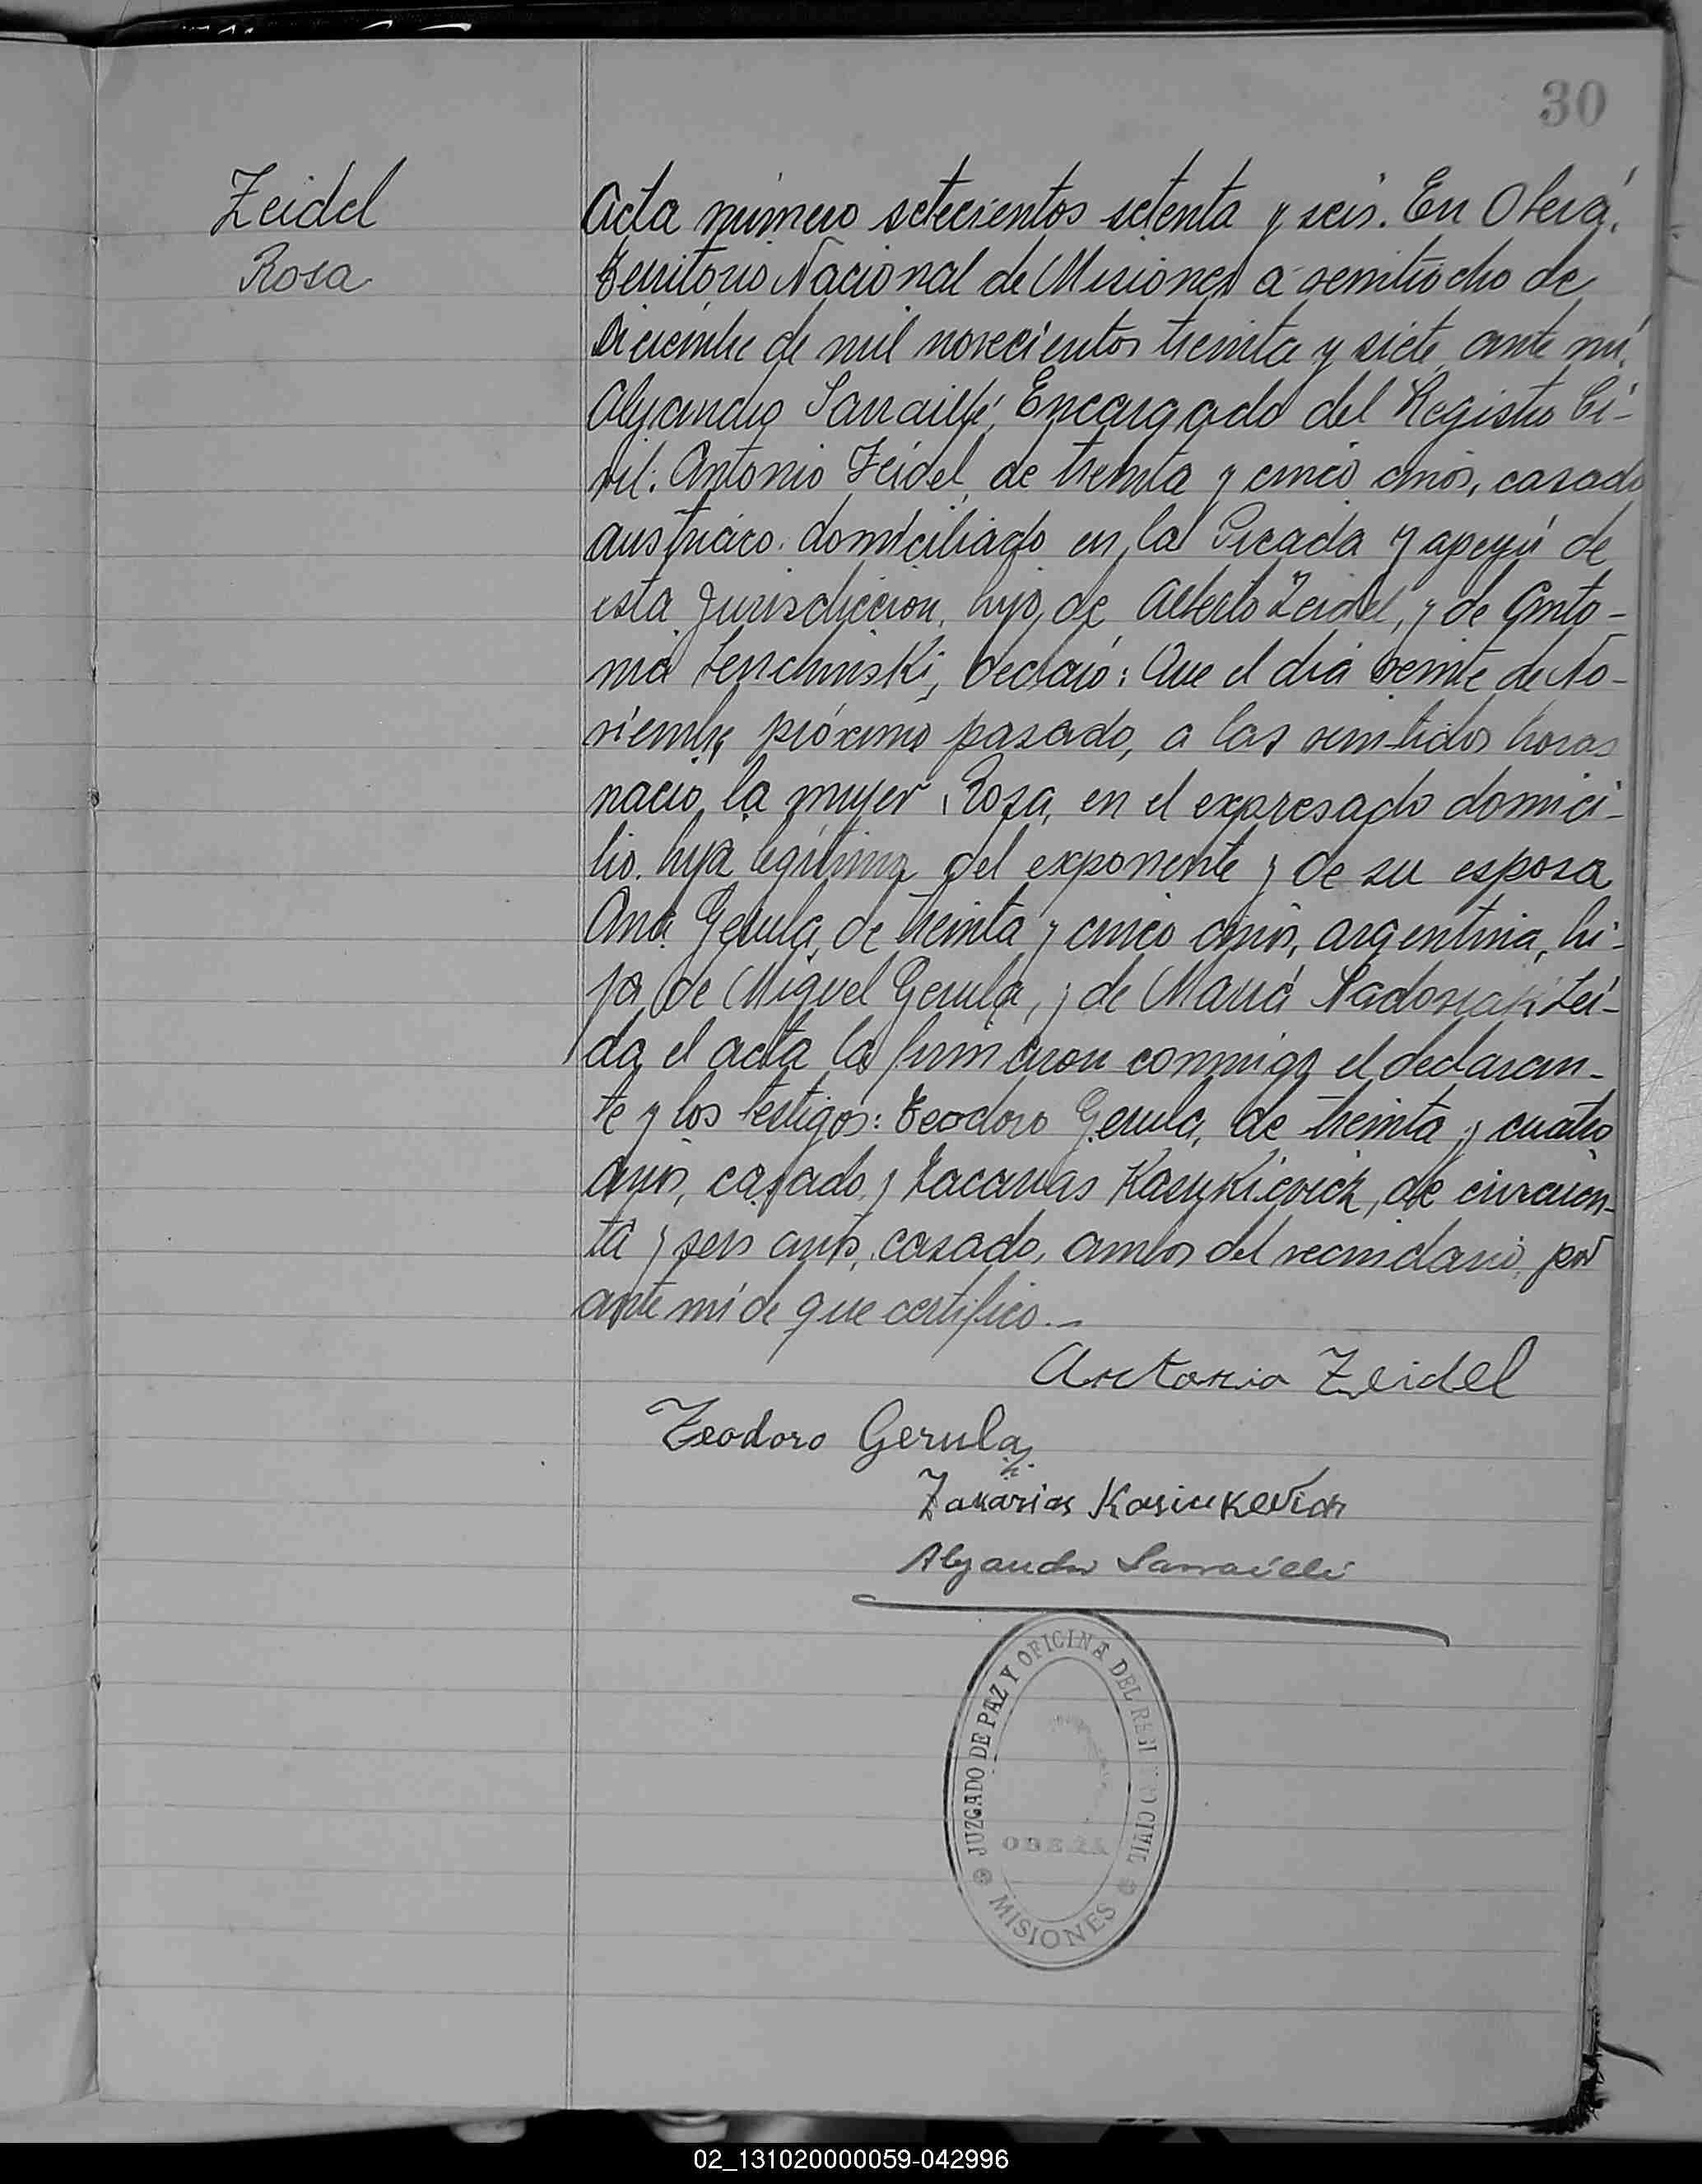 30
Zeidel
Rosa
Acta número setecientos setenta y seis. En Oberá,
Territorio Nacional de Misiones a veintiocho de
Diciembre de mil novecientos treinta y siete, ante mí,
Alejandro Sarrailhé, Encargado del Registro Ci-
vil: Antonio Zeidel, de treinta y cinco años, casado
austriaco, domiciliado en la Picada Yapeyú de
esta Jurisdiccion, hijo de Alberto Zeidel, y de Anto-
nia, declaró: Que el dia veinte de No-
viembre próximo pasado, a las veintidos horas
nació la mujer Rosa, en el expresado domici-
lio, hija legítima del exponente y de su esposa
Ana Gerula, de treinta y cinco años, argentina, hi-
ja de Miguel Gerula, y de María Leí-
da el acta la firmaron conmigo el declaran-
te y los testigos: Teodoro Gerula, de treinta y cuatro
años, casado y Zacarias Kasykievich, de cincuen-
ta y seis años, casado, ambos del vecindario, por
ante mí de que certifico.-
Antonio Zeidel
Teodoro Gerula
Zakarias Kasiukevich
Alejandro Sarrailhé
JUZGADO DE PAZ Y OFICINA DEL REGISTRO CIVIL
OBERA
MISIONES
02_131020000059-042996